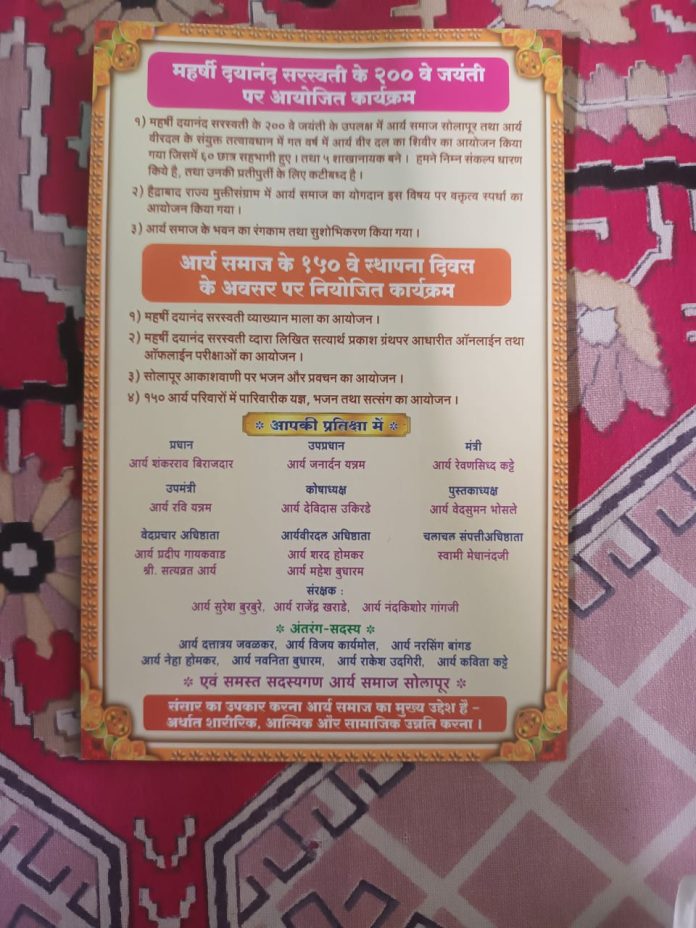 महर्षी दयानंद सरस्वती के २०० वे जयंती
पर आयोजित कार्यक्रम
१) महर्षी दयानंद सरस्वती के २०० वे जयंती के उपलक्ष में आर्य समाज सोलापूर तथा आर्य
वीरदल के संयुक्त तत्वावधान में गत वर्ष में आर्य वीर दल का शिवीर का आयोजन किया
गया जिसमें ६० छात्र सहभागी हुए । तथा ५ शाखानायक बने । हमने निम्न संकल्प धारण
किये है, तथा उनकी प्रतीपुर्ती के लिए कटीबध्द है ।
२) हैद्राबाद राज्य मुक्तीसंग्राम में आर्य समाज का योगदान इस विषय पर वक्तृत्व स्पर्धा का
आयोजन किया गया ।
३) आर्य समाज के भवन का रंगकाम तथा सुशोभिकरण किया गया ।
आर्य समाज के १५० वे स्थापना दिवस
के अवसर पर नियोजित कार्यक्रम
१) महर्षी दयानंद सरस्वती व्याख्यान माला का आयोजन ।
२) महर्षी दयानंद सरस्वती व्दारा लिखित सत्यार्थ प्रकाश ग्रंथपर आधारीत ऑनलाईन तथा
ऑफलाईन परीक्षाओं का आयोजन ।
३) सोलापूर आकाशवाणी पर भजन और प्रवचन का आयोजन ।
४) १५० आर्य परिवारों में पारिवारीक यज्ञ, भजन तथा सत्संग का आयोजन ।
आपकी प्रतिक्षा में
प्रधान उपप्रधान मंत्री
आर्य शंकरराव बिराजदार आर्य जनार्दन यन्नम आर्य रेवणसिध्द कट्टे
उपमंत्री कोषाध्यक्ष पुस्तकाध्यक्ष
आर्य रवि यन्नम आर्य देविदास उकिरडे आर्य वेदसुमन भोसले
वेदप्रचार अधिष्ठाता आर्यवीरदल अधिष्ठाता चलाचल संपत्तीअधिष्ठाता
आर्य प्रदीप गायकवाड आर्य शरद होमकर स्वामी मेधानंदजी
श्री. सत्यव्रत आर्य आर्य महेश बुधारम
संरक्षक :
आर्य सुरेश बुरबुरे, आर्य राजेंद्र खराडे, आर्य नंदकिशोर गांगजी
अंतरंग-सदस्य
आर्य दत्तात्रय जवळकर, आर्य विजय कार्यमोल, आर्य नरसिंग बांगड
आर्य नेहा होमकर, आर्य नवनिता बुधारम, आर्य राकेश उदगिरी, आर्य कविता कट्टे
एवं समस्त सदस्यगण आर्य समाज सोलापूर
संसार का उपकार करना आर्य समाज का मुख्य उद्देश है -
अर्थात शारीरिक, आत्मिक और सामाजिक उन्नति करना ।